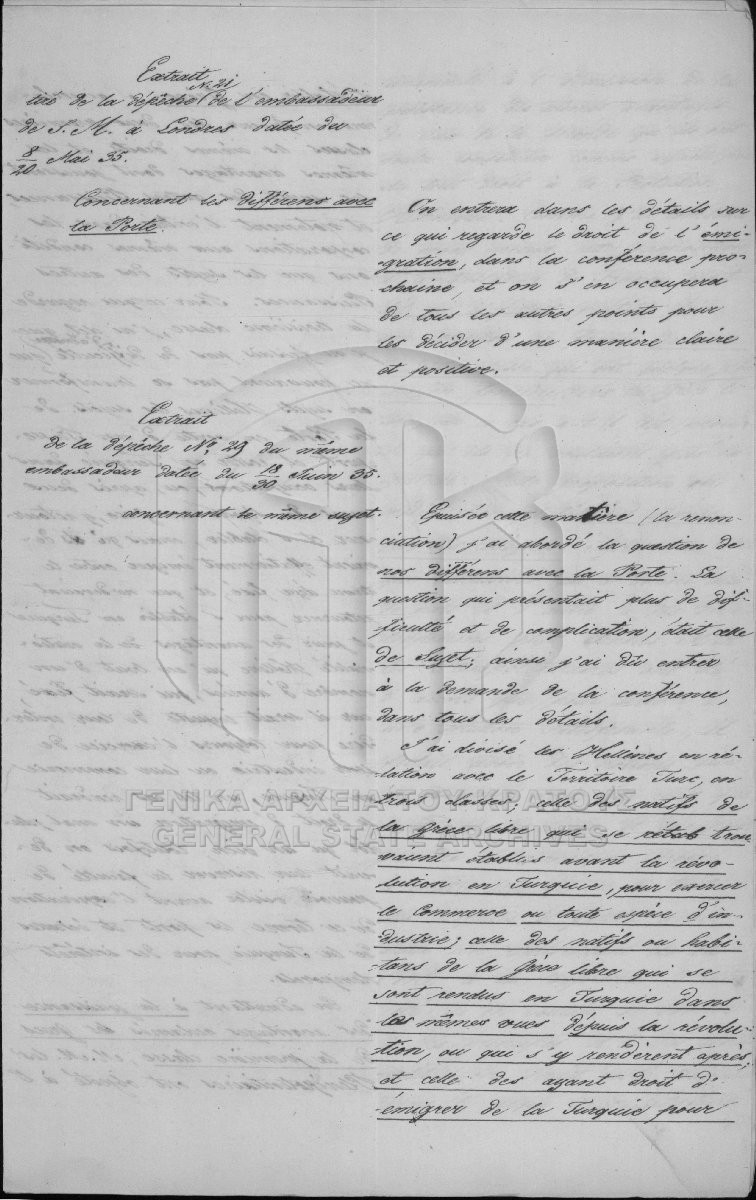 Extrait
tiré de la dépêche N: 21 de l'embassadeur
de S. M. à Londres datée du
8/20 Mai 35.
Concernant les différens avec
la Porte.
On entrera dans les détails sur
ce qui regarde le droit de l'émi-
-gration, dans la conférence pro-
chaine, et on s'en occupera
de tous les autres points pour
les décider d'une manière claire
et positive.
Extrait
de la dépêche No: 29 du même
embassadeur datée du 18/30 Juin 35.
concernant le même sujet.
Epuisée cette matière (la renon-
ciation) j'ai abordé la question de
nos différens avec la Porte. La
question qui présentait plus de dif-
ficulté et de complication, était celle
de Sujet; ainsi j'ai dû entrer
à la demande de la conférence,
dans tous les détails.
J'ai divisé les Hellènes en ré-
lation avec le Territoire Turc, en
trois classes; celle des natifs de
la Grèce libre qui se rétab trou
vaient établis avant la révo-
lution en Turquie, pour exercer
le Commerce ou toute espèce d'in-
dustrie; celle des natifs ou habi-
-tans de la Grèce libre qui se
sont rendus en Turquie dans
les mêmes vues dépuis la révolu-
tion, ou qui s'y rendèrent après,
et celle des ayant droit d'
émigrer de la Turquie pour
ΓΕΝΙΚΑ ΑΡΧΕΙΑ ΤΟΥ ΚΡΑΤΟΥΣ
GENERAL STATE ARCHIVES